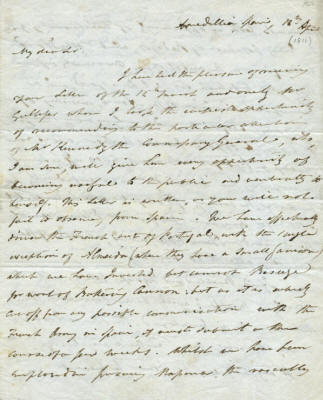 Spain, 18th April
(1811)
My dear Sir
I have had the pleasure of receiving
your letter of the 12 and only Mr
Gillespie whom I took the earliest opportunity
of recommending to the particular attention
of Mr Kennedy the Commissary General, who,
I am sure, will give him every opportunity of
becoming useful to the public and eventually to
himself. This letter is written, as you will
see it above, from Spain. We have effectually
driven the French out of Portugal with the single
exception of Almeida (where they have a small Garrison)
which we have Invested but cannot Besiege
for want of Battering Cannon: but as it is entirely
cut off from any possible communication with the
French Army in Spain, it must submit in the
course of a few weeks. Whilst we have been
employed in pursuing Massena the